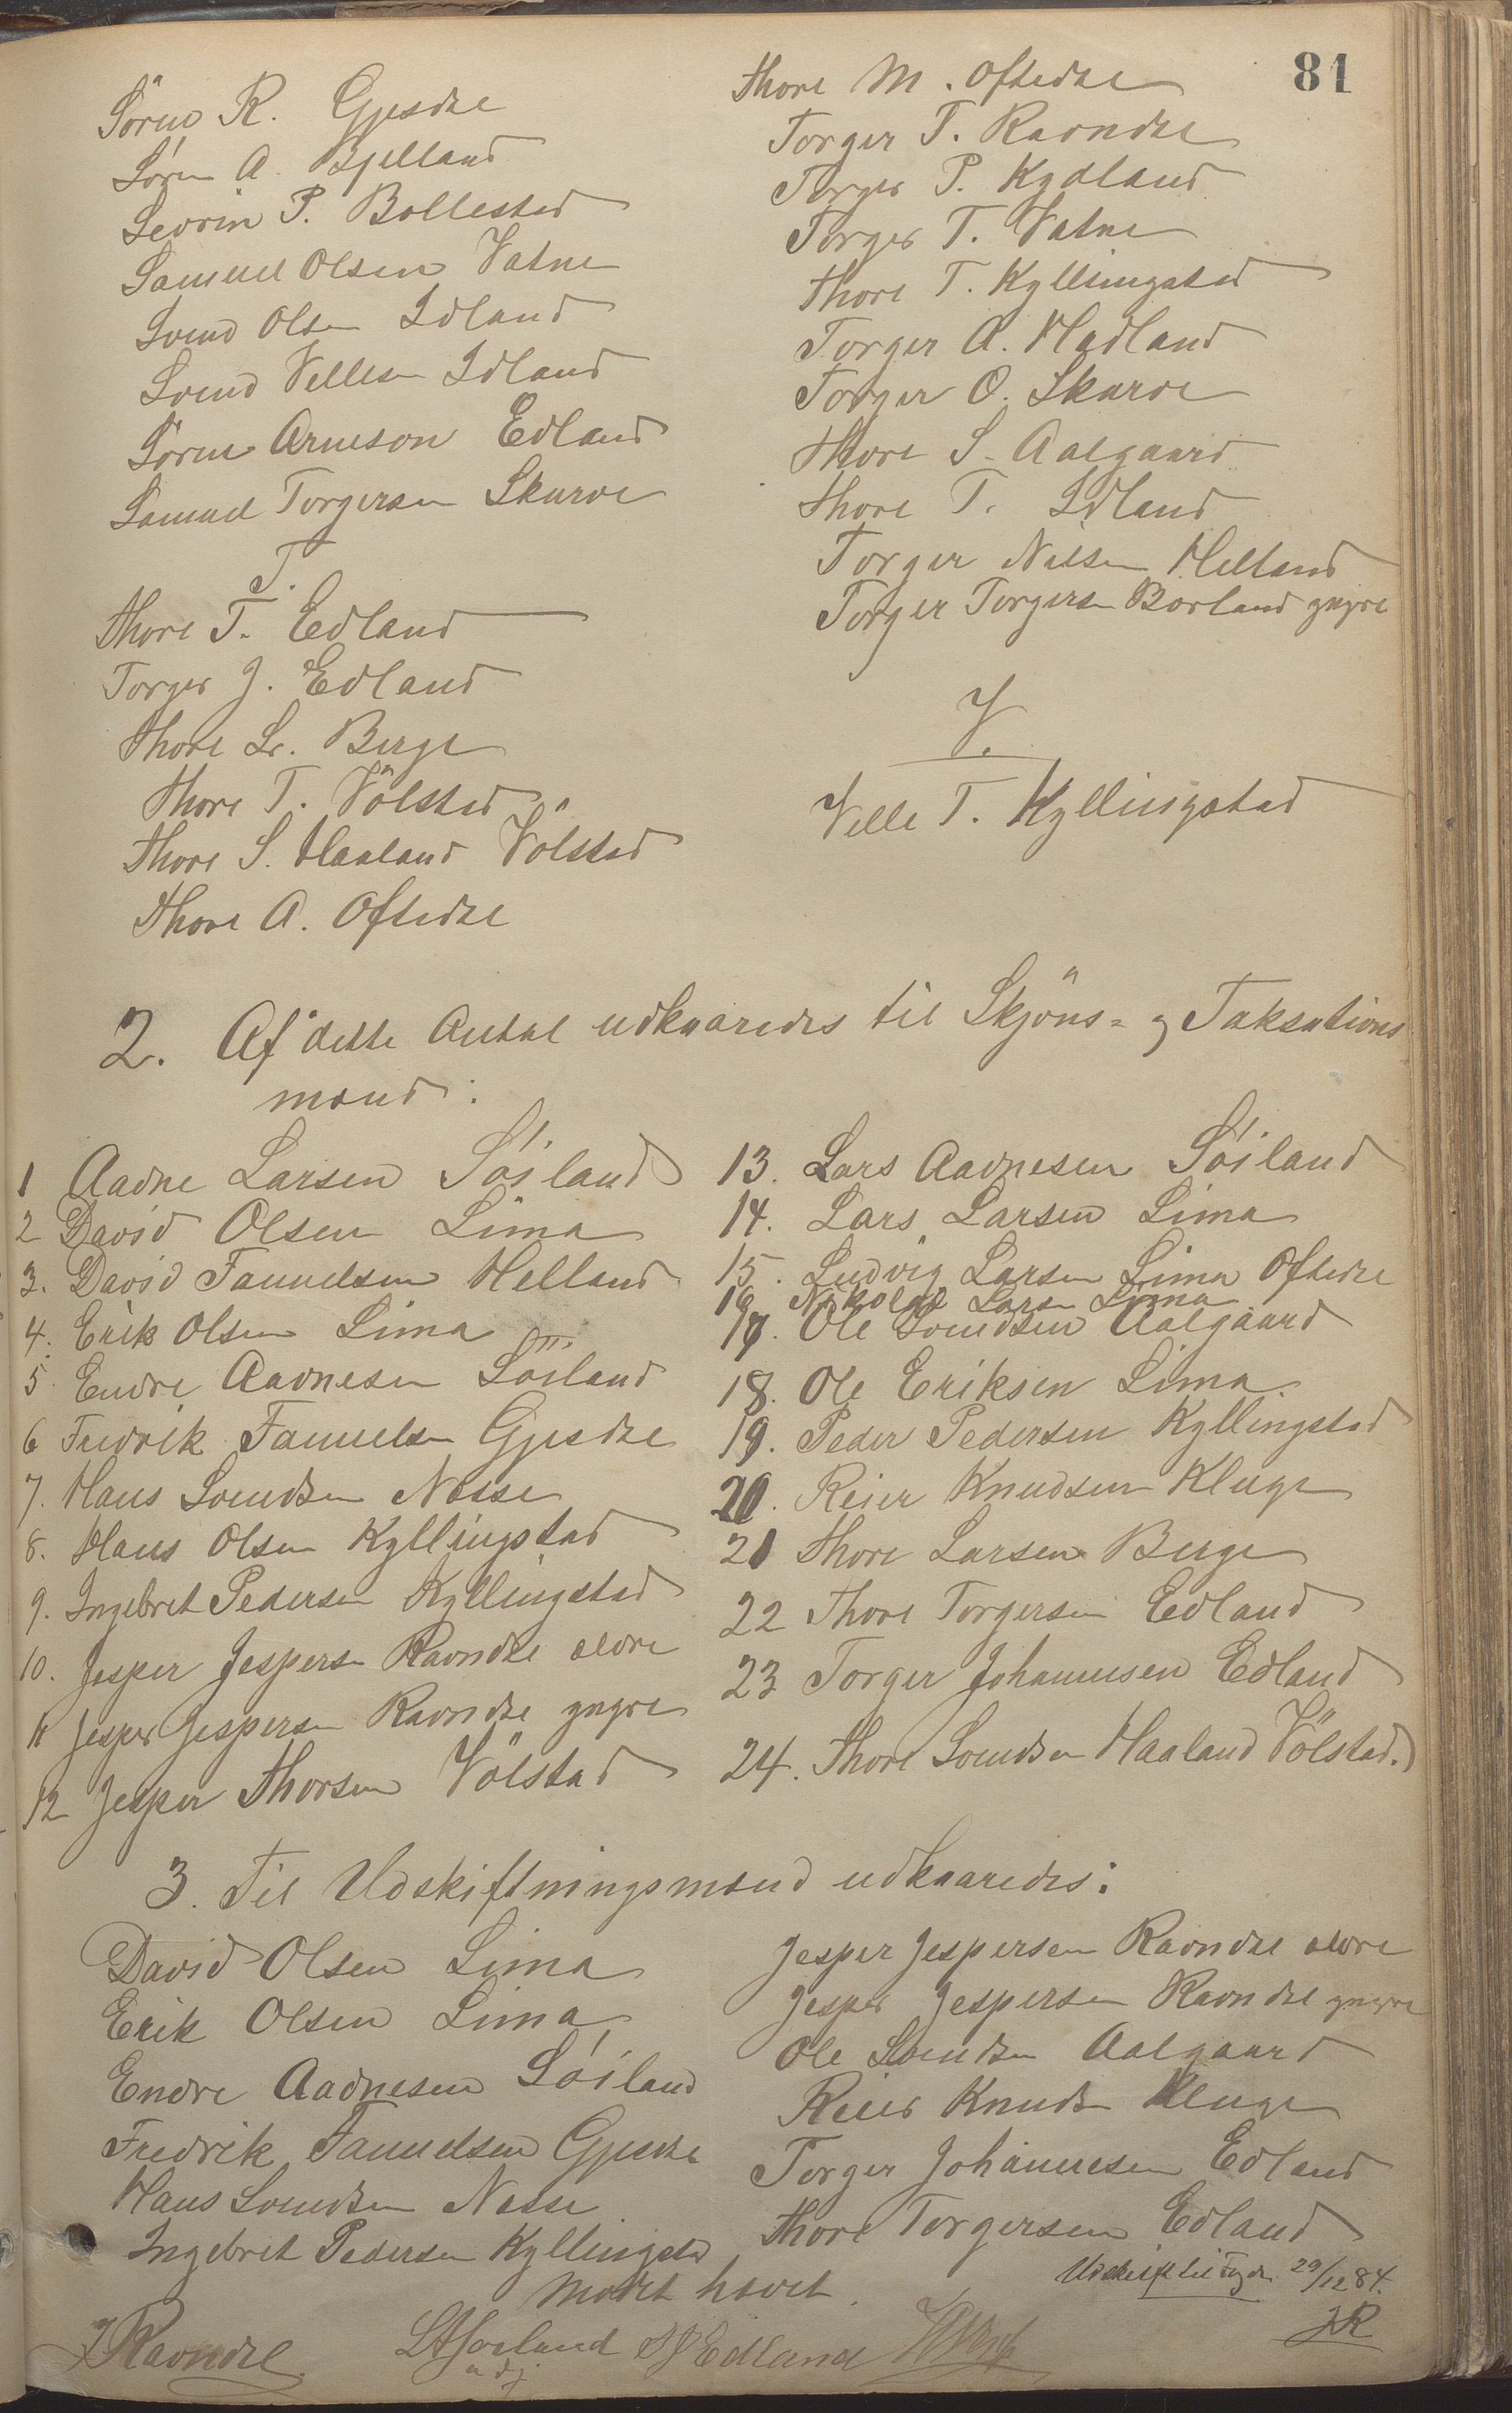 81
Sören R. Gjesdal
Sören A. Bjelland
Sevrin P. Bollestad
Samuel Olsen Vatne
Svend Olsen Idland
Svend Vellesen Idland
Sören Arneson Edland
Samuel Torgersen Skurve
T.
Thore T. Edland
Torger J. Edland
Thore Lr. Berge
Thore T. Völstad
Thore S. Haaland Völstad
Thore A. Oftedal
Thore M. Oftedal
Torger T. Ravndal
Torger P. Kydland
Torger T. Vatne
Thore T. Kyllingstad
Torger A. Hadland
Torger O. Skurve
Thore S. Aalgaard
Thore T. Idland
Torger Nilsen Helland
Torger Torgersen Borland yngre
V.
Velle T. Kyllingstad
2. Af dette Antal udkaaredes til Skjöns= og Taksations
mænd:
1 Aadne Larsen Söiland
2 David Olsen Lima
3. David Samuelsen Helland
4. Erik Olsen Lima
5 Endre Aadnesen Söiland
6 Fredrik Samuelsen Gjesdal
7. Hans Svendsen Nesse
8. Hans Olsen Kyllingstad
9. Ingebret Pedersen Kyllingstad
10. Jesper Jespersen Ravndal ældre
11 Jesper Jespersen Ravndal yngre
12 Jesper Thorsen Völstad
13. Lars Aadnesen Söiland
14. Lars Larsen Lima
15. Ludvig Larsen Lima Oftedal
16 Nikolai Larsen Lima
17. Ole Svendsen Aalgaard
18. Ole Eriksen Lima
19. Peder Pedersen Kyllingstad
20. Reier Knudsen Kluge
21 Thore Larsen Berge
22 Thore Torgersen Edland
23 Torger Johannesen Edland
24. Thore Svendsen Haaland Völstad.
3. Til Udskiftningsmænd udkaaredes:
David Olsen Lima
Erik Olsen Lima
Endre Aadnesen Söiland
Fredrik Samuelsen Gjesdal
Hans Svendsen Nesse
Ingebret Pedersen Kyllingstad
Jesper Jespersen Ravndal ældre
Jesper Jespersen Ravndal yngre
Ole Svendsen Aalgaard
Reier Knudsen Kluge
Torger Johannesen Edland
Thore Torgersen Edland
Mødet hævet.
Udskrift til Fogden 29/12 84.
JR
J Ravndal LA Soiland TJ Edland